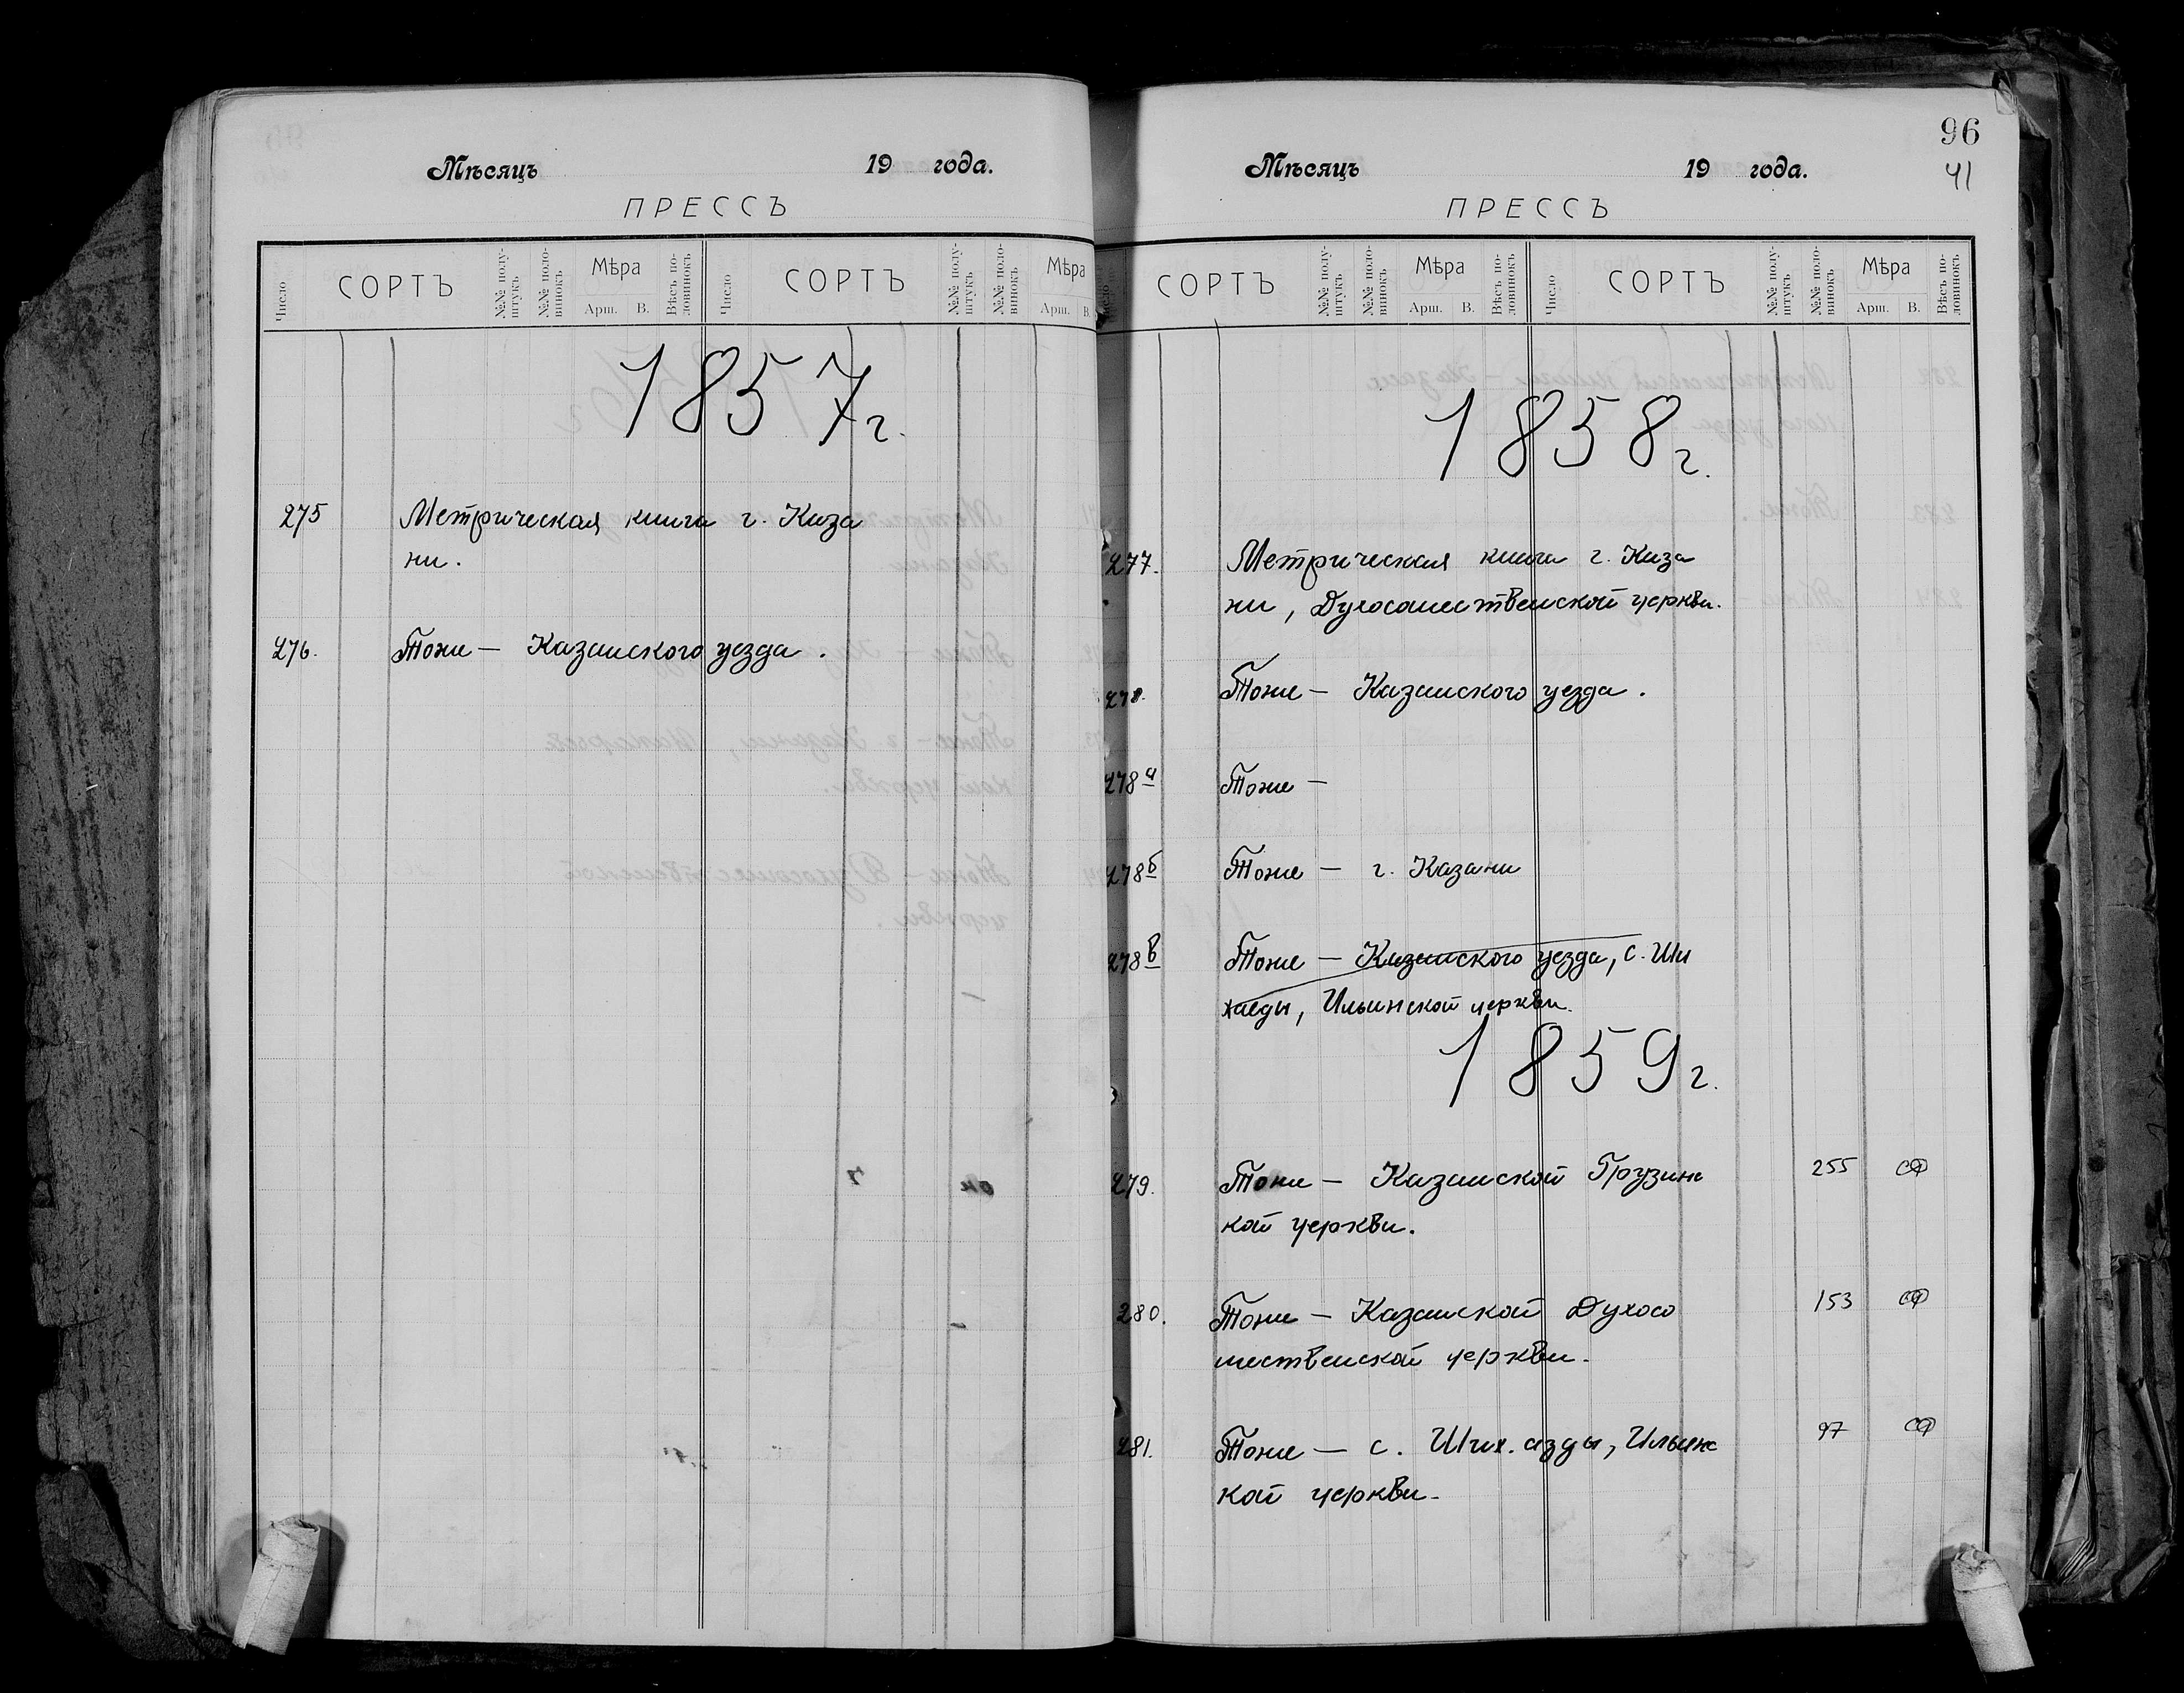 Мѣсяцъ 19 года.
ПРЕССЪ
Число СОРТЪ №№ полу-штукъ №№ поло-винокъ Мѣра Арш. В. Вѣсъ по-ловинокъ Число СОРТЪ №№ полу-штукъ №№ поло-винокъ Мѣра Арш. В.
1857г.
275 Метрическая книга г. Каза
ни.
276. Тоже — Казанского уезда.
96
41
Мѣсяцъ 19 года.
ПРЕССЪ
СОРТЪ №№ полу-штукъ №№ поло-винокъ Мѣра Арш. В. Вѣсъ по-ловинокъ Число СОРТЪ №№ полу-штукъ №№ поло-винокъ Мѣра Арш. В. Вѣсъ по-ловинокъ
1858г.
277. Метрическая книга г. Каза
ни, Духосошественской церкви.
278. Тоже — Казанского уезда.
278а Тоже —
278б Тоже — г. Казани
278в Тоже — Казанского уезда, с. Ши
хазды, Ильинской церкви.
1859г.
279. Тоже — Казанской Грузинс 255
кой церкви.
280. Тоже — Казанской Духосо 153
шественской церкви.
281. Тоже — с. Ших.азды, Ильинс 97
кой церкви.